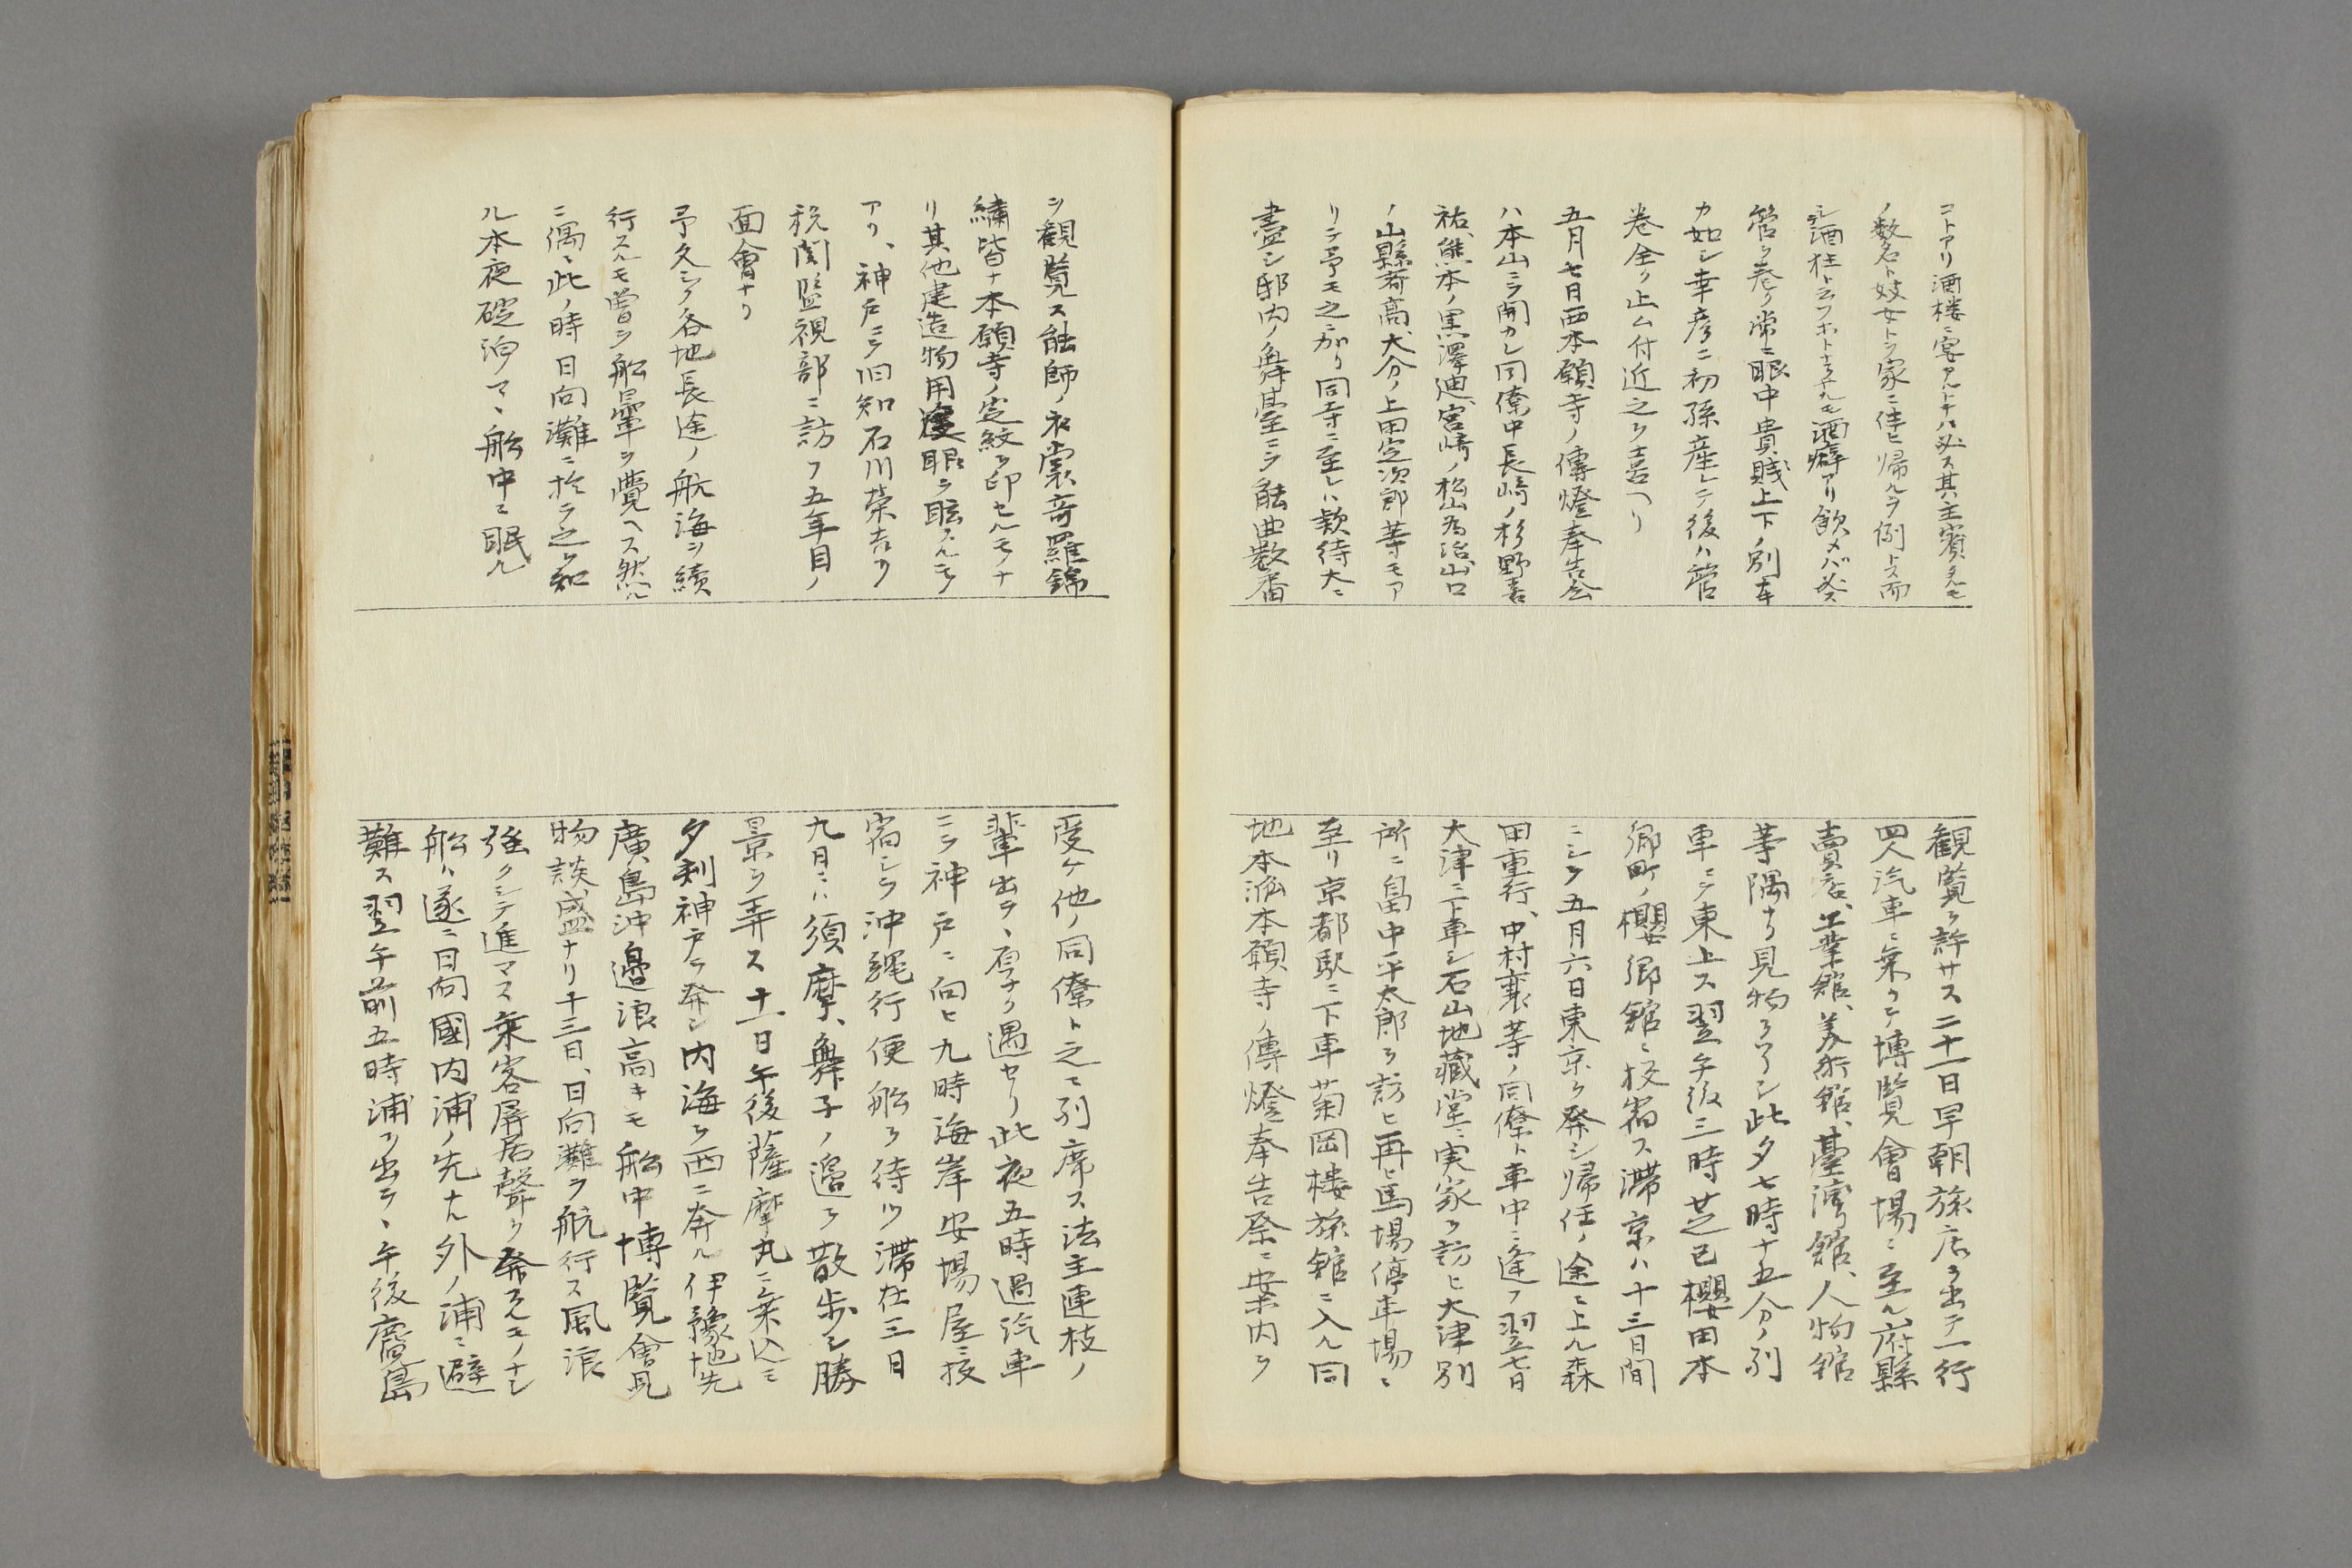 コトアリ酒楼ニ宴アルトキハ必ス其主賓タルモ
ノ数名ト妓女トヲ家ニ伴ヒ帰ルヲ例トス而
シ酒狂ト云フホトナラサルモ酒癖アリ飲メバ必ス
管ヲ巻ク常ニ眼中貴賎上下ノ別ナキ
カ如シ幸彦ニ初孫産レテ後ハ管
巻全ク止ム付近之ヲ喜ヘリ
五月七日西本願寺ノ傳燈奉告会
ハ本山ニテ開カレ同僚中長崎ノ杉野喜
祐、熊本ノ黒澤迪、宮崎ノ松山為治、山口
ノ山縣有高、大分ノ上田定次郎等モア
リテ予モ之ニ加リ同寺ニ至レハ款待大ニ
盡シ邸内ノ舞臺ニテ能曲数番
観覧ヲ許サス二十一日早朝旅店ヲ出テ一行
四人汽車ニ乗リテ博覧會場ニ至ル府縣
賣店、工業館、美術館、臺湾館、人物館
等隅ナク見物ヲ了シ此夕七時十五分ノ列
車ニテ東上ス翌午後三時芝巴櫻田本
郷町ノ櫻郷館ニ投宿ス滞京ハ十三日間
ニシテ五月六日東京ヲ発シ帰任ノ途ニ上ル森
田重行、中村襄等ノ同僚ト車中ニ逢フ翌七日
大津ニ下車シ石山地藏堂ニ実家ヲ訪ヒ大津別
所ニ畠中平太郎ヲ訪ヒ再ヒ馬場停車場ニ
至リ京都駅ニ下車菊岡楼旅館ニ入ル同
地本派本願寺ノ傳燈奉告祭ニ案内ヲ
ヲ観覧ス能師ノ衣裳奇羅錦
繍皆ナ本願寺ノ定紋ヲ印セルモノナ
リ其他建造物用度眼ヲ眩スルモノ
アリ、神戸ニテ旧知石川榮吉ヲ
税関監視部ニ訪フ五年目ノ
面會ナリ
予久シク各地長途ノ航海ヲ續
行スルモ曽テ船暈ヲ覺ヘス然ル
ニ偶々此ノ時日向灘ニ於テ之ヲ知
ル本夜碇泊ノマヽ船中ニ眠ル
受ケ他ノ同僚ト之ニ列席ス法主連枝ノ
輩出テヽ厚ク遇セリ此夜五時過汽車
ニテ神戸ニ向ヒ九時海岸安場屋ニ投
宿シテ沖縄行便船ヲ待ツ滞在三日
九日ニハ須摩、舞子ノ邉ヲ散歩シ勝
景ヲ弄ス十一日午後薩摩丸ニ乗込ミ
夕刻神戸ヲ発シ内海ヲ西ニ奔ル伊豫地先
廣島沖邉浪高キモ船中博覧會見
物談盛ナリ十三日、日向灘ヲ航行ス風浪
強クシテ進マス乗客屏居聲ヲ発スルモノナシ
船ハ遂ニ日向國内浦ノ先ナル外ノ浦ニ避
難ス翌午前五時浦ヲ出テヽ午後鹿島